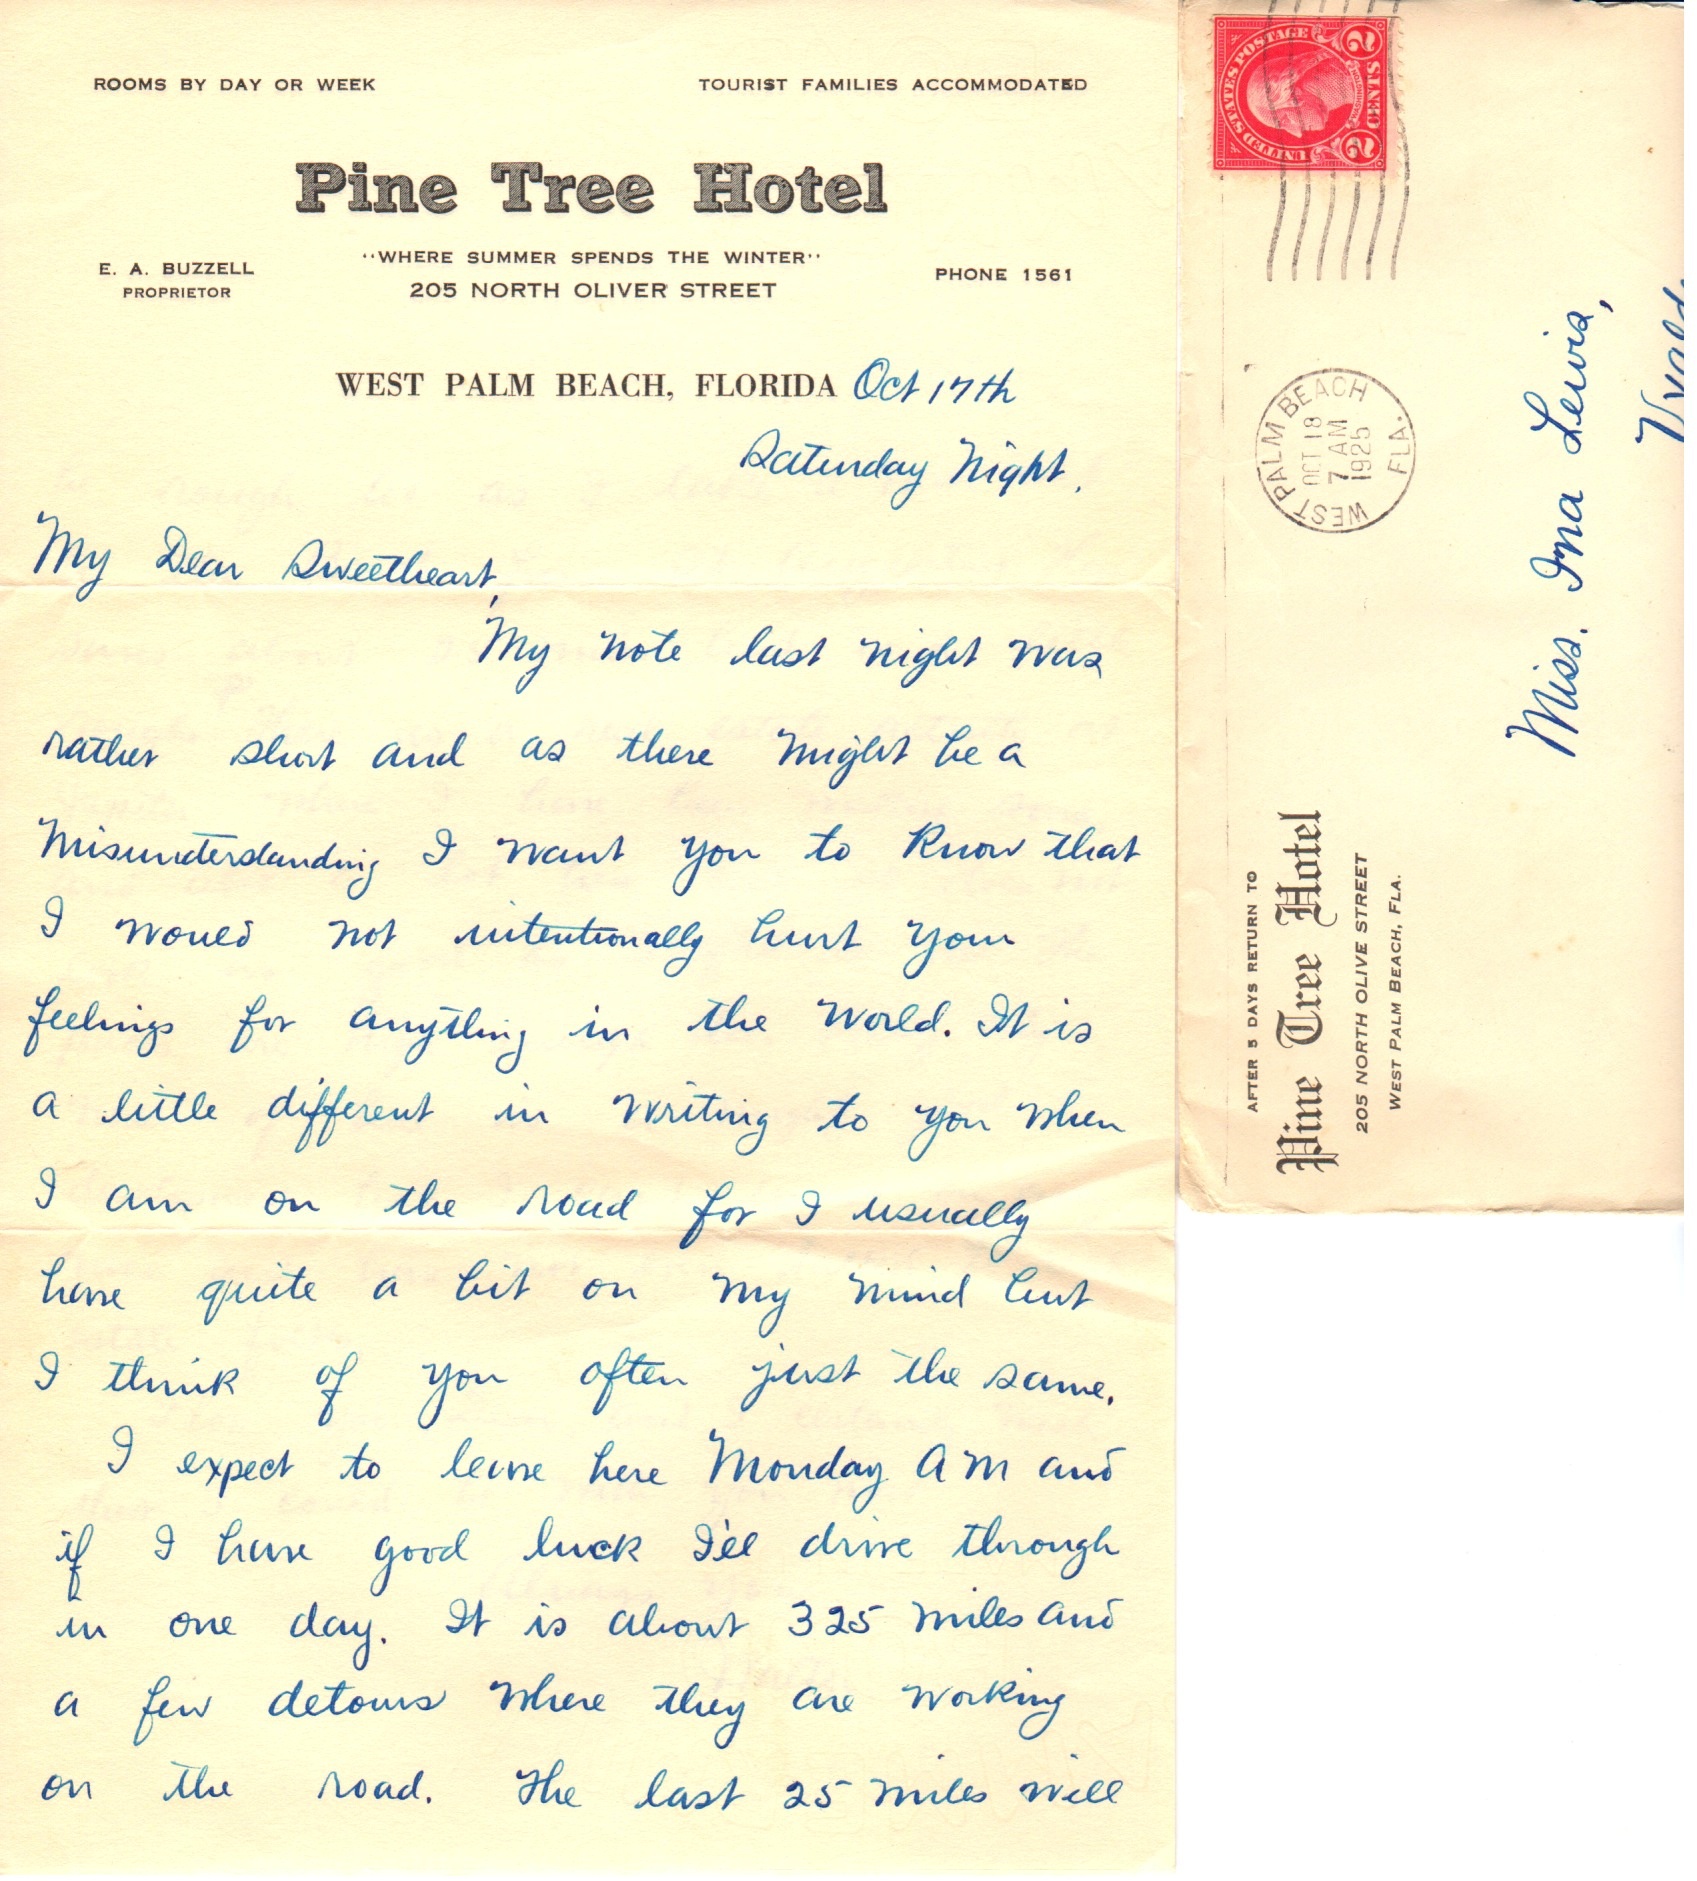 ROOMS BY DAY OR WEEK
TOURIST FAMILIES ACCOMMODATED
Pine Tree Hotel
E. A. BUZZELL
PROPRIETOR
"WHERE SUMMER SPENDS THE WINTER"
205 NORTH OLIVER STREET
PHONE 1561
WEST PALM BEACH, FLORIDA Oct 17th
Saturday Night.
My Dear Sweetheart,
My note last night was
rather short and as there might be a
misunderstanding I want you to know that
I would not intentionally hurt your
feelings for anything in the world. It is
a little different in writing to you when
I am on the road for I usually
have quite a bit on my mind but
I think of you often just the same.
I expect to leave here Monday A M and
if I have good luck I'll drive through
in one day. It is about 325 miles and
a few detours where they are working
on the road. The last 25 miles will
UNITED STATES POSTAGE
WASHINGTON
2 CENTS 2
WEST PALM BEACH
OCT 18
7 AM
1925
FLA.
AFTER 5 DAYS RETURN TO
Pine Tree Hotel
205 NORTH OLIVE STREET
WEST PALM BEACH, FLA.
Miss. Ina Lewis,